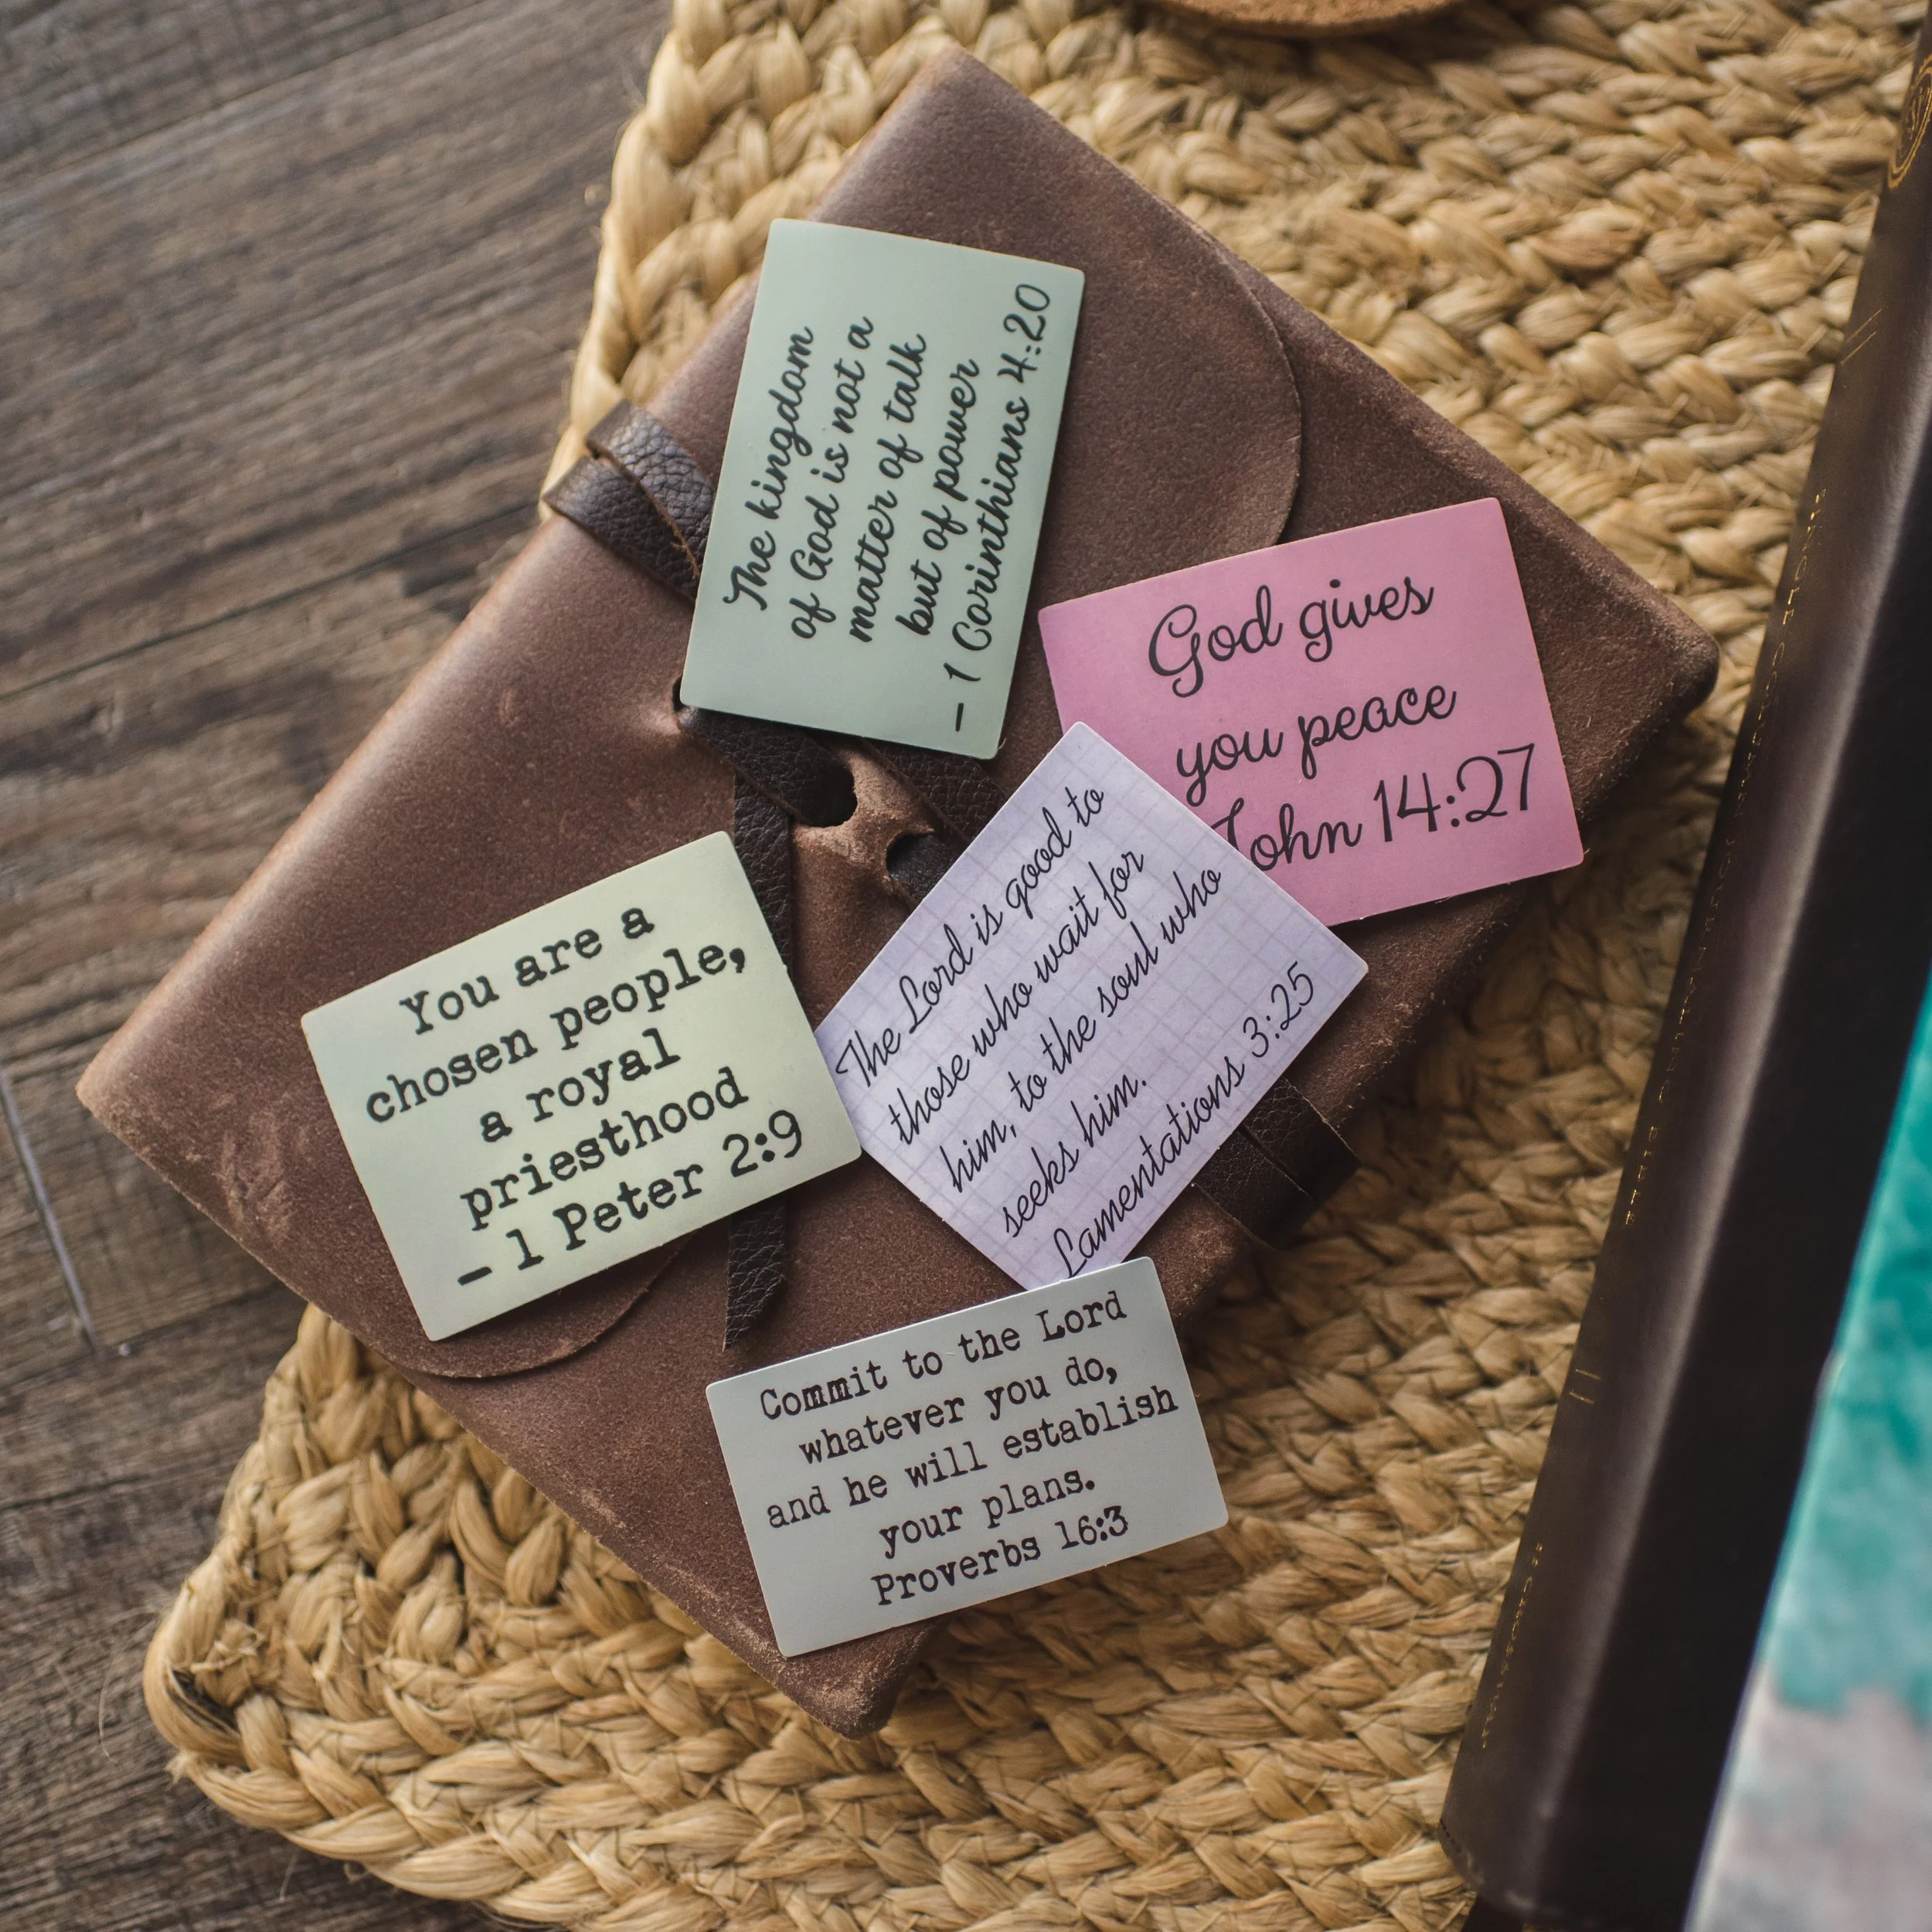 The kingdom
of God is not a
matter of talk
but of power
– 1 Corinthians 4:20
God gives
you peace
John 14:27
You are a
chosen people,
a royal
priesthood
– 1 Peter 2:9
The Lord is good to
those who wait for
him, to the soul who
seeks him.
Lamentations 3:25
Commit to the Lord
whatever you do,
and he will establish
your plans.
Proverbs 16:3